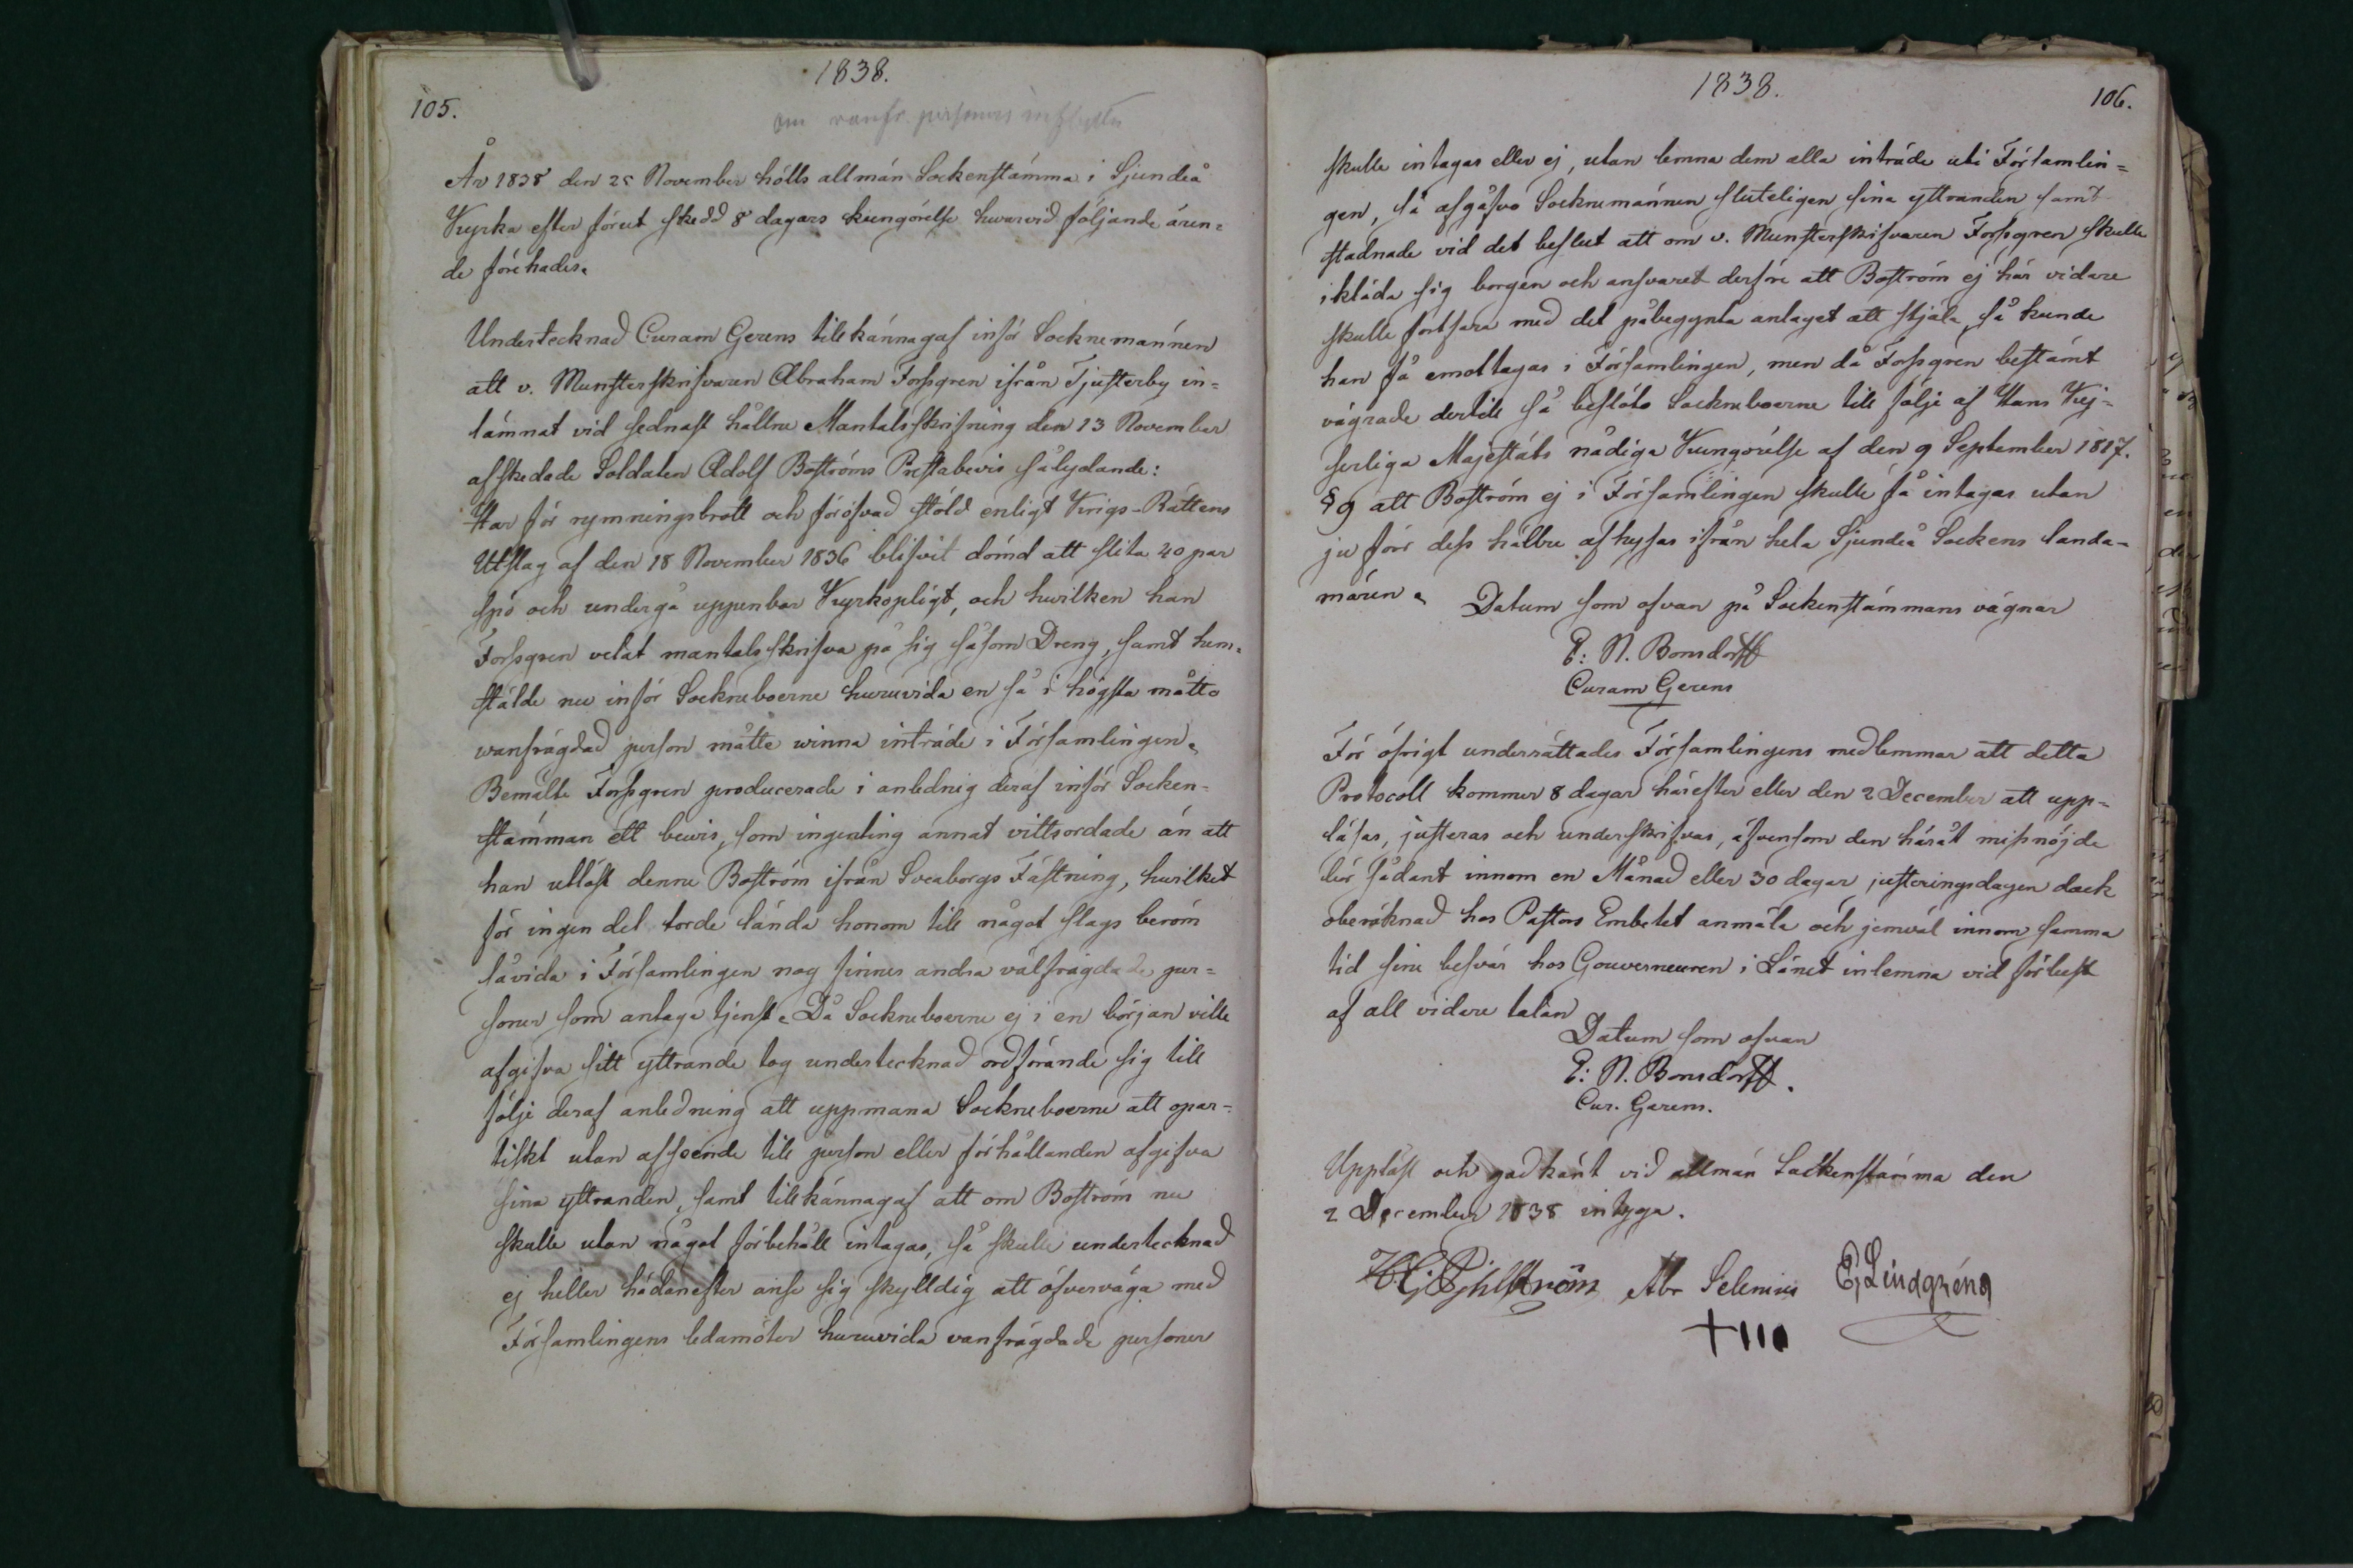 1838.
105.
om vanfr. personers inflytta
År 1838 den 25 November hölls allmän Sockenstämma i Sjundeå
Kyrka efter förut skedd 8 dagars kungörelse hvarvid följande ären=
de förehades.
Undertecknad Curam Gerens tillkännagaf inför Socknemännen
att v. Munsterskrifvaren Abraham Forssgren ifrån Tjusterby in=
lämnat vid sednast hållne Mantalsskrifning den 13 November
afskedade Soldaten Adolf Boströms Prestabevis sålydande:
Har för rymningsbrott och föröfvad stöld enligt Krigs-Rättens
Utslag af den 18 November 1836 blifvit dömd att slita 40 par
spö och undergå uppenbar Kyrkopligt, och hwilken han
Forssgren velat mantalsskrifva på sig såsom Dreng, samt hem=
stälde nu inför Sockneboerne huruvida en så i högsta måtto
wanfrägdad person måtte winna inträde i Församlingen.
Bemälte Forssgren producerade i anlednig deraf inför Socken=
stämman ett bewis, som ingenting annat vittsordade än att
han utlöst denne Boström ifrån Sveaborgs Fästning, hwilket
för ingen del torde lända honom till något slags beröm
såvida i Församlingen nog finnes andra välfrägdade per=
soner som antaga tjenst. Då Sockneboerne ej i en början ville
afgifva sitt yttrande tog undertecknad ordförande sig till
följe deraf anledning att uppmana Sockneboerne att opar=
tiskt utan afseende till person eller förhållanden afgifva
sina yttranden, samt tillkännagaf att om Boström nu
skulle utan något förbehåll intagas, så skulle undertecknad
ej heller hädanefter anse sig skylldig att öfverväga med
Församlingens ledamöter huruvida vanfrägdade personer
1838.
106.
skulle intagas eller ej, utan lemna dem alla inträde uti Församlin=
gen, så afgåfvo Socknemännen sluteligen sina yttranden samt
stadnade vid det beslut att om v. Munsterskrifvaren Forssgren skulle
ikläda sig borgen och ansvaret derföre att Boström ej här vidare
skulle fortfara med det påbegynta antaget att stjäla, så kunde
han få emottagas i Församlingen, men då Forssgren bestämt
vägrade dertill så beslöto Sockneboerne till följe af Hans Kej=
serliga Majestäts nådiga Kungörelse af den 9 September 1817.
§ 9 att Boström ej i Församlingen skulle få intagas utan
ju förr dess hällre afhysas ifrån hela Sjundeå Sockens landa=
mären. Datum som ofvan på Sockenstämmans vägnar
E: N. Bonsdorff
Curam Gerens
För öfrigt underrättades Församlingens medlemmar att detta
Protocoll kommer 8 dagar härefter eller den 2 December att upp=
läsas, justeras och underskrifvas, äfvensom den häråt missnöjde
bör sådant innom en Månad eller 30 dagar justeringsdagen dock
oberäknad hos Pastors Embetet anmäla och jemväl innom samma
tid sine besvär hos Gouverneuren i Länet inlemna vid förlust
af all vidare talan
Datum som ofvan
E: N. Bonsdorff.
Cur. Gerens.
Uppläst och godkänt vid allmän Sockenstämma den
2 December 1838 intyga.
Abr Selenius E Lindgrén